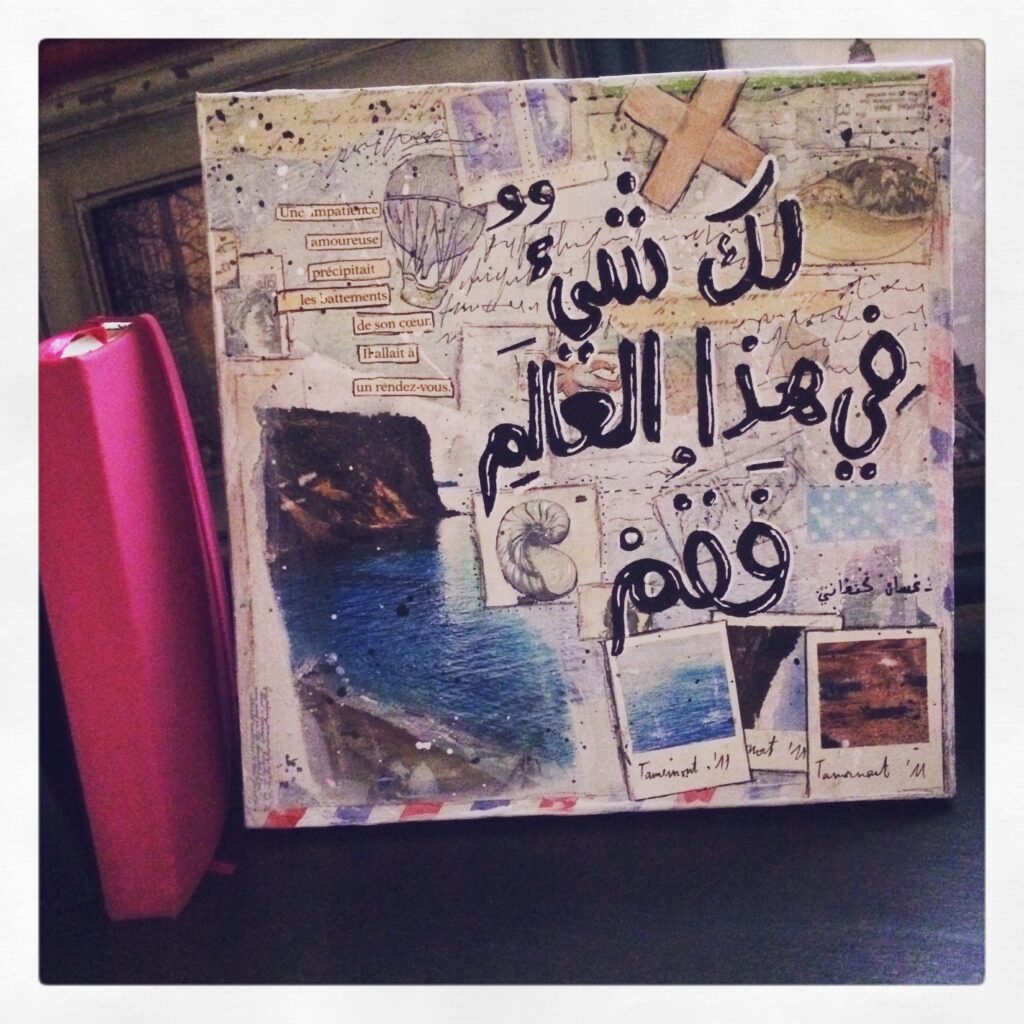 لكَ شيءٌ
في هذا العالَمِ
فَقُمْ
- غسان كنفاني
Une impatience
amoureuse
précipitait
les battements
de son cœur.
Il allait à
un rendez-vous.
'11
'11
'11